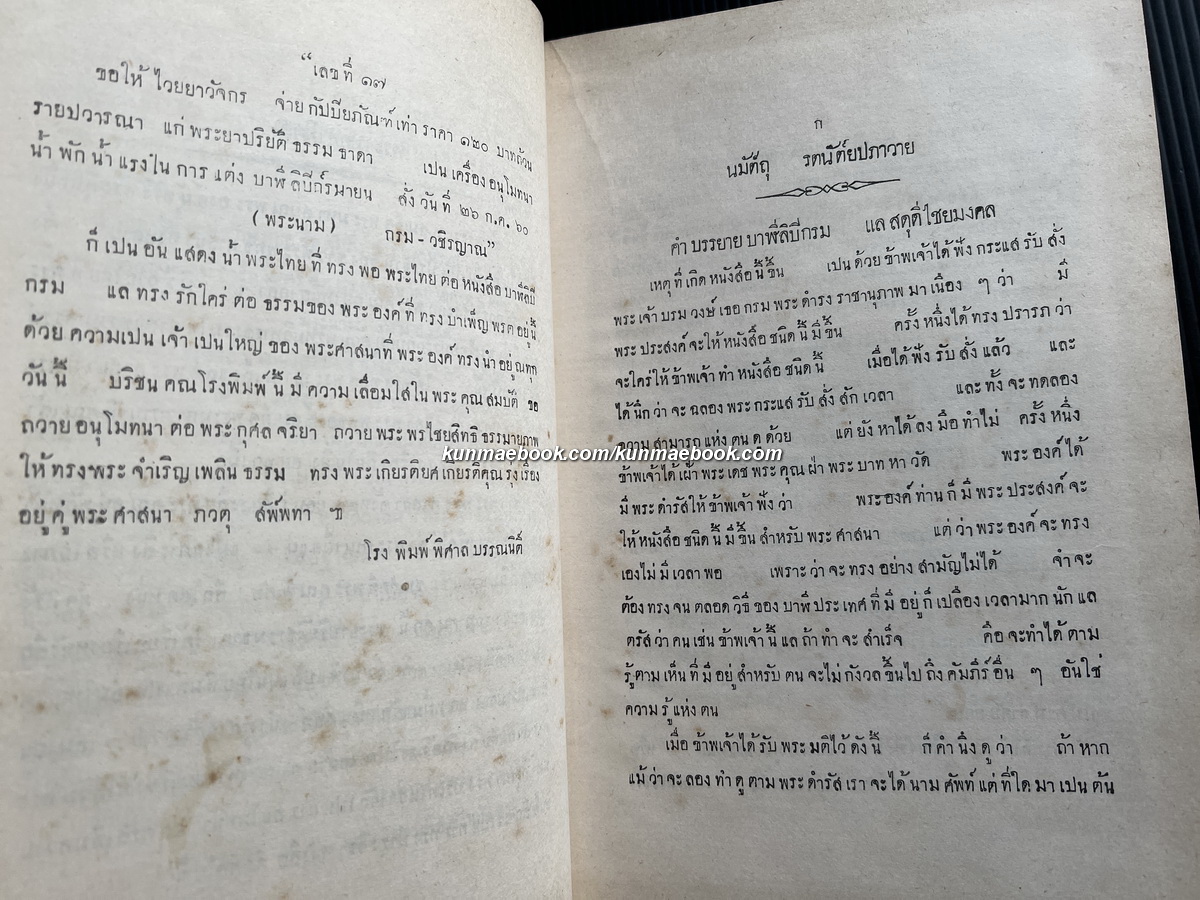 “เลขที่ ๑๗
ขอให้ ไวยยาวัจกร จ่าย กัปบียภัณฑ์เท่า ราคา ๑๒๐ บาทถ้วน
รายปวารณา แก่ พระยาปริยัติ ธรรม ธาดา เปน เครื่อง อนุโมทนา
น้ำ พัก น้ำ แรงใน การ แต่ง บาฬี ลิปีกรมายน สั่ง วัน ที่ ๒๖ ก.ค. ๖๐
(พระนาม) กรม - วชิรญาณ”
ก็ เปน อัน แสดง น้ำ พระไทย ที่ ทรง พอ พระไทย ต่อ หนังสือ บาฬีลิปี
กรม แล ทรง รักใคร่ ต่อ ธรรมของ พระ องค์ ที่ ทรง บำเพ็ญ พรต อยู่นี้
ด้วย ความเปน เจ้า เปนใหญ่ ของ พระศาสนาที่ พระ องค์ ทรง นำ อยู่ ณทุก
วัน นี้ บริชน คณโรงพิมพ์ นี้ มี ความ เลื่อมใสใน พระ คุณ สมบัติ ขอ
ถวาย อนุโมทนา ต่อ พระ กุศล จริยา ถวาย พระ พรไชยสิทธิ ธรรมายุภาพ
ให้ ทรงพระ จำเริญ เพลิน ธรรม ทรง พระ เกียรติยศ เกียรติคุณ รุ่ง เรือง
อยู่ คู่ พระ ศาสนา ภวตุ สัพ์พทา ฯ
โรง พิมพ์ พิศาล บรรณนิติ์
ก
นมัต์ถุ รตนัต์ยปภาวาย
คำ บรรยาย บาฬีลิปีกรม แล สตุดีไชยมงคล
เหตุ ที่ เกิด หนังสือ นี้ ขึ้น เปน ด้วย ข้าพเจ้าได้ ฟัง กระแส รับ สั่ง
พระ เจ้า บรม วงษ์ เธอ กรม พระ ดำรง ราชานุภาพ มา เนือง ๆ ว่า มี
พระ ประสงค์ จะให้ หนังสือ ชนิด นี้ มี ขึ้น ครั้ง หนึ่งได้ ทรง ปรารภ ว่า
จะใคร่ให้ ข้าพเจ้า ทำ หนังสือ ชนิด นี้ เมื่อได้ ฟัง รับ สั่ง แล้ว และ
ได้นึก ว่า จะ ฉลอง พระ กระแส รับ สั่ง สัก เวลา และ ทั้ง จะ ทดลอง
ความ สามารถ แห่ง ตน ด้วย แต่ ยัง หาได้ ลง มือ ทำไม่ ครั้ง หนึ่ง
ข้าพเจ้าได้ เฝ้า พระ เดช พระ คุณ ฝ่า พระ บาท หา วัด พระ องค์ ได้
มี พระ ดำรัสให้ ข้าพ เจ้า ฟัง ว่า พระองค์ ท่าน ก็ มี พระ ประสงค์ จะ
ให้ หนังสือ ชนิด นี้ มี ขึ้น สำหรับ พระ ศาสนา แต่ ว่า พระ องค์ จะ ทรง
เองไม่ มี เวลา พอ เพราะ ว่า จะ ทรง อย่าง สามัญไม่ได้ จำ จะ
ต้อง ทรง จน ตลอด วิธี ของ บาฬี ประ เทศ ที่ มี อยู่ ก็ เปลือง เวลามาก นัก แล
ตรัส ว่า คน เช่น ข้าพเจ้า นี้ แล ถ้า ทำ จะ สำเร็จ คือ จะทำได้ ตาม
รู้ ตาม เห็น ที่ มี อยู่ สำหรับ ตน จะไม่ กังวล ขึ้นไป ถึง คัมภีร์ อื่น ๆ อันใช่
ความ รู้ แห่ง ตน
เมื่อ ข้าพเจ้าได้ รับ พระ มติไว้ ดัง นี้ ก็ คำ นึง ดู ว่า ถ้า หาก
แม้ ว่า จะ ลอง ทำ ดู ตาม พระ ดำรัส เรา จะได้ นาม ศัพท์ แต่ ที่ใด มา เปน ต้น
kunmaebook.com/kunmaebook.com